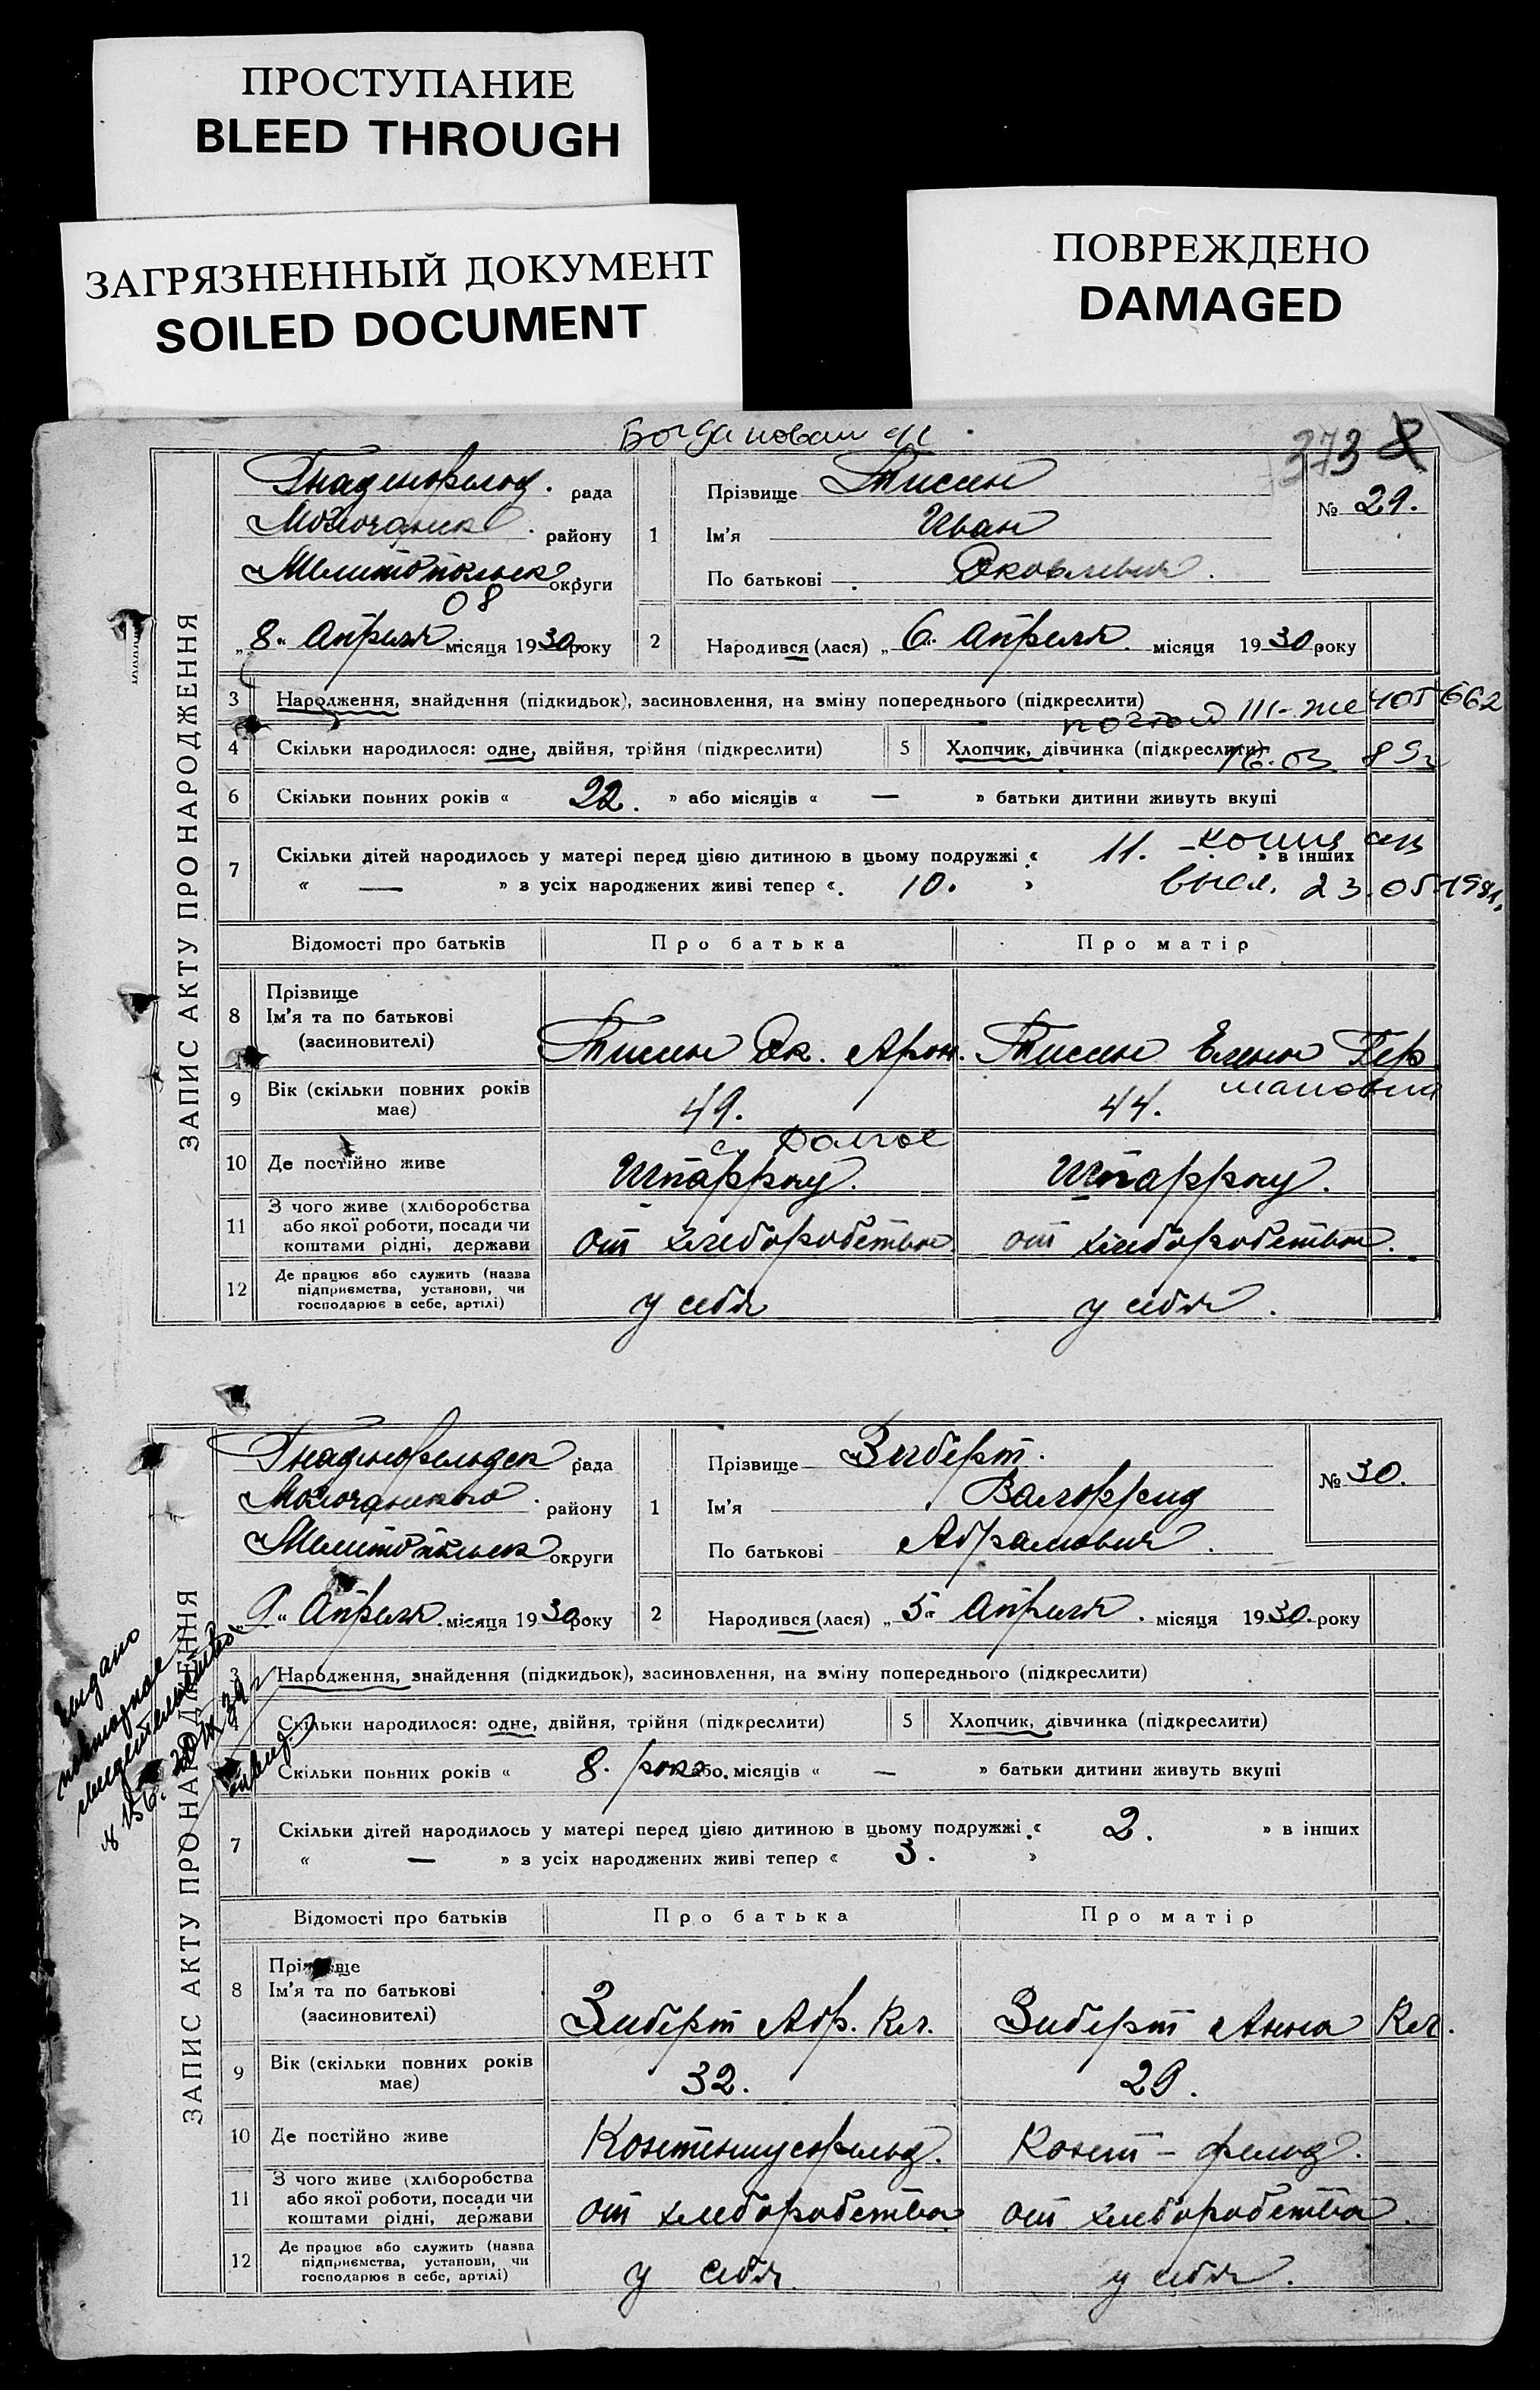 ПРОСТУПАНИЕ
BLEED THROUGH
ЗАГРЯЗНЕННЫЙ ДОКУМЕНТ
SOILED DOCUMENT
ПОВРЕЖДЕНО
DAMAGED
373
ЗАПИС АКТУ ПРО НАРОДЖЕННЯ
Гнаденфельд. рада
Молочанск. району
Мелитопольск округи
08
„8" Апреля місяця 1930 року
1 Прізвище Тиссен
Ім'я Иван
По батькові Яковлевич.
№ 29.
2 Народився (лася) „6" Апреля. місяця 1930 року
3 Народження, знайдення (підкидьок), засиновлення, на зміну попереднього (підкреслити)
III-же 405662
4 Скільки народилося: одне, двійня, трійня (підкреслити) 5 Хлопчик, дівчинка (підкреслити)
6 Скільки повних років « 22. » або місяців « — » батьки дитини живуть вкупі
7 Скільки дітей народилось у матері перед цією дитиною в цьому подружжі « 11. » в інших
« — » з усіх народжених живі тепер « 10. »
копия
высл. 23.05.1981.
Відомості про батьків Про батька Про матір
8 Прізвище
Ім'я та по батькові
(засиновителі)
Тиссен Як. Арон. Тиссен Елена Гер
мановна
9 Вік (скільки повних років має) 49. 44.
с. Долгое
10 Де постійно живе Шпаррау. Шпаррау.
11 З чого живе (хліборобства або якої роботи, посади чи коштами рідні, держави от хлеборобства от хлеборобства.
12 Де працює або служить (назва підприємства, установи, чи господарює в себе, артілі) у себя у себя.
ЗАПИС АКТУ ПРО НАРОДЖЕННЯ
Гнаденфельдск рада
Молочанского району
Мелитопольск округи
„9" Апреля місяця 1930 року
1 Прізвище Зиберт.
Ім'я Валфрид
По батькові Абрамович.
№ 30.
2 Народився (лася) „5" Апреля. місяця 1930. року
3 Народження, знайдення (підкидьок), засиновлення, на зміну попереднього (підкреслити)
Скільки народилося: одне, двійня, трійня (підкреслити) 5 Хлопчик, дівчинка (підкреслити)
Скільки повних років « 8. або місяців « — » батьки дитини живуть вкупі
7 Скільки дітей народилось у матері перед цією дитиною в цьому подружжі « 2. » в інших
« — » з усіх народжених живі тепер « 3. »
выдано
повторное
свидетельство
№ 156.
Відомості про батьків Про батька Про матір
8 Прізвище
Ім'я та по батькові
(засиновителі)
Зиберт Абр. Кл. Зиберт Анна Кл.
9 Вік (скільки повних років має) 32. 29.
10 Де постійно живе Контениусфельд. Конт-фельд.
11 З чого живе (хліборобства або якої роботи, посади чи коштами рідні, держави от хлеборобства от хлеборобства.
12 Де працює або служить (назва підприємства, установи, чи господарює в себе, артілі) у себя. у себя.